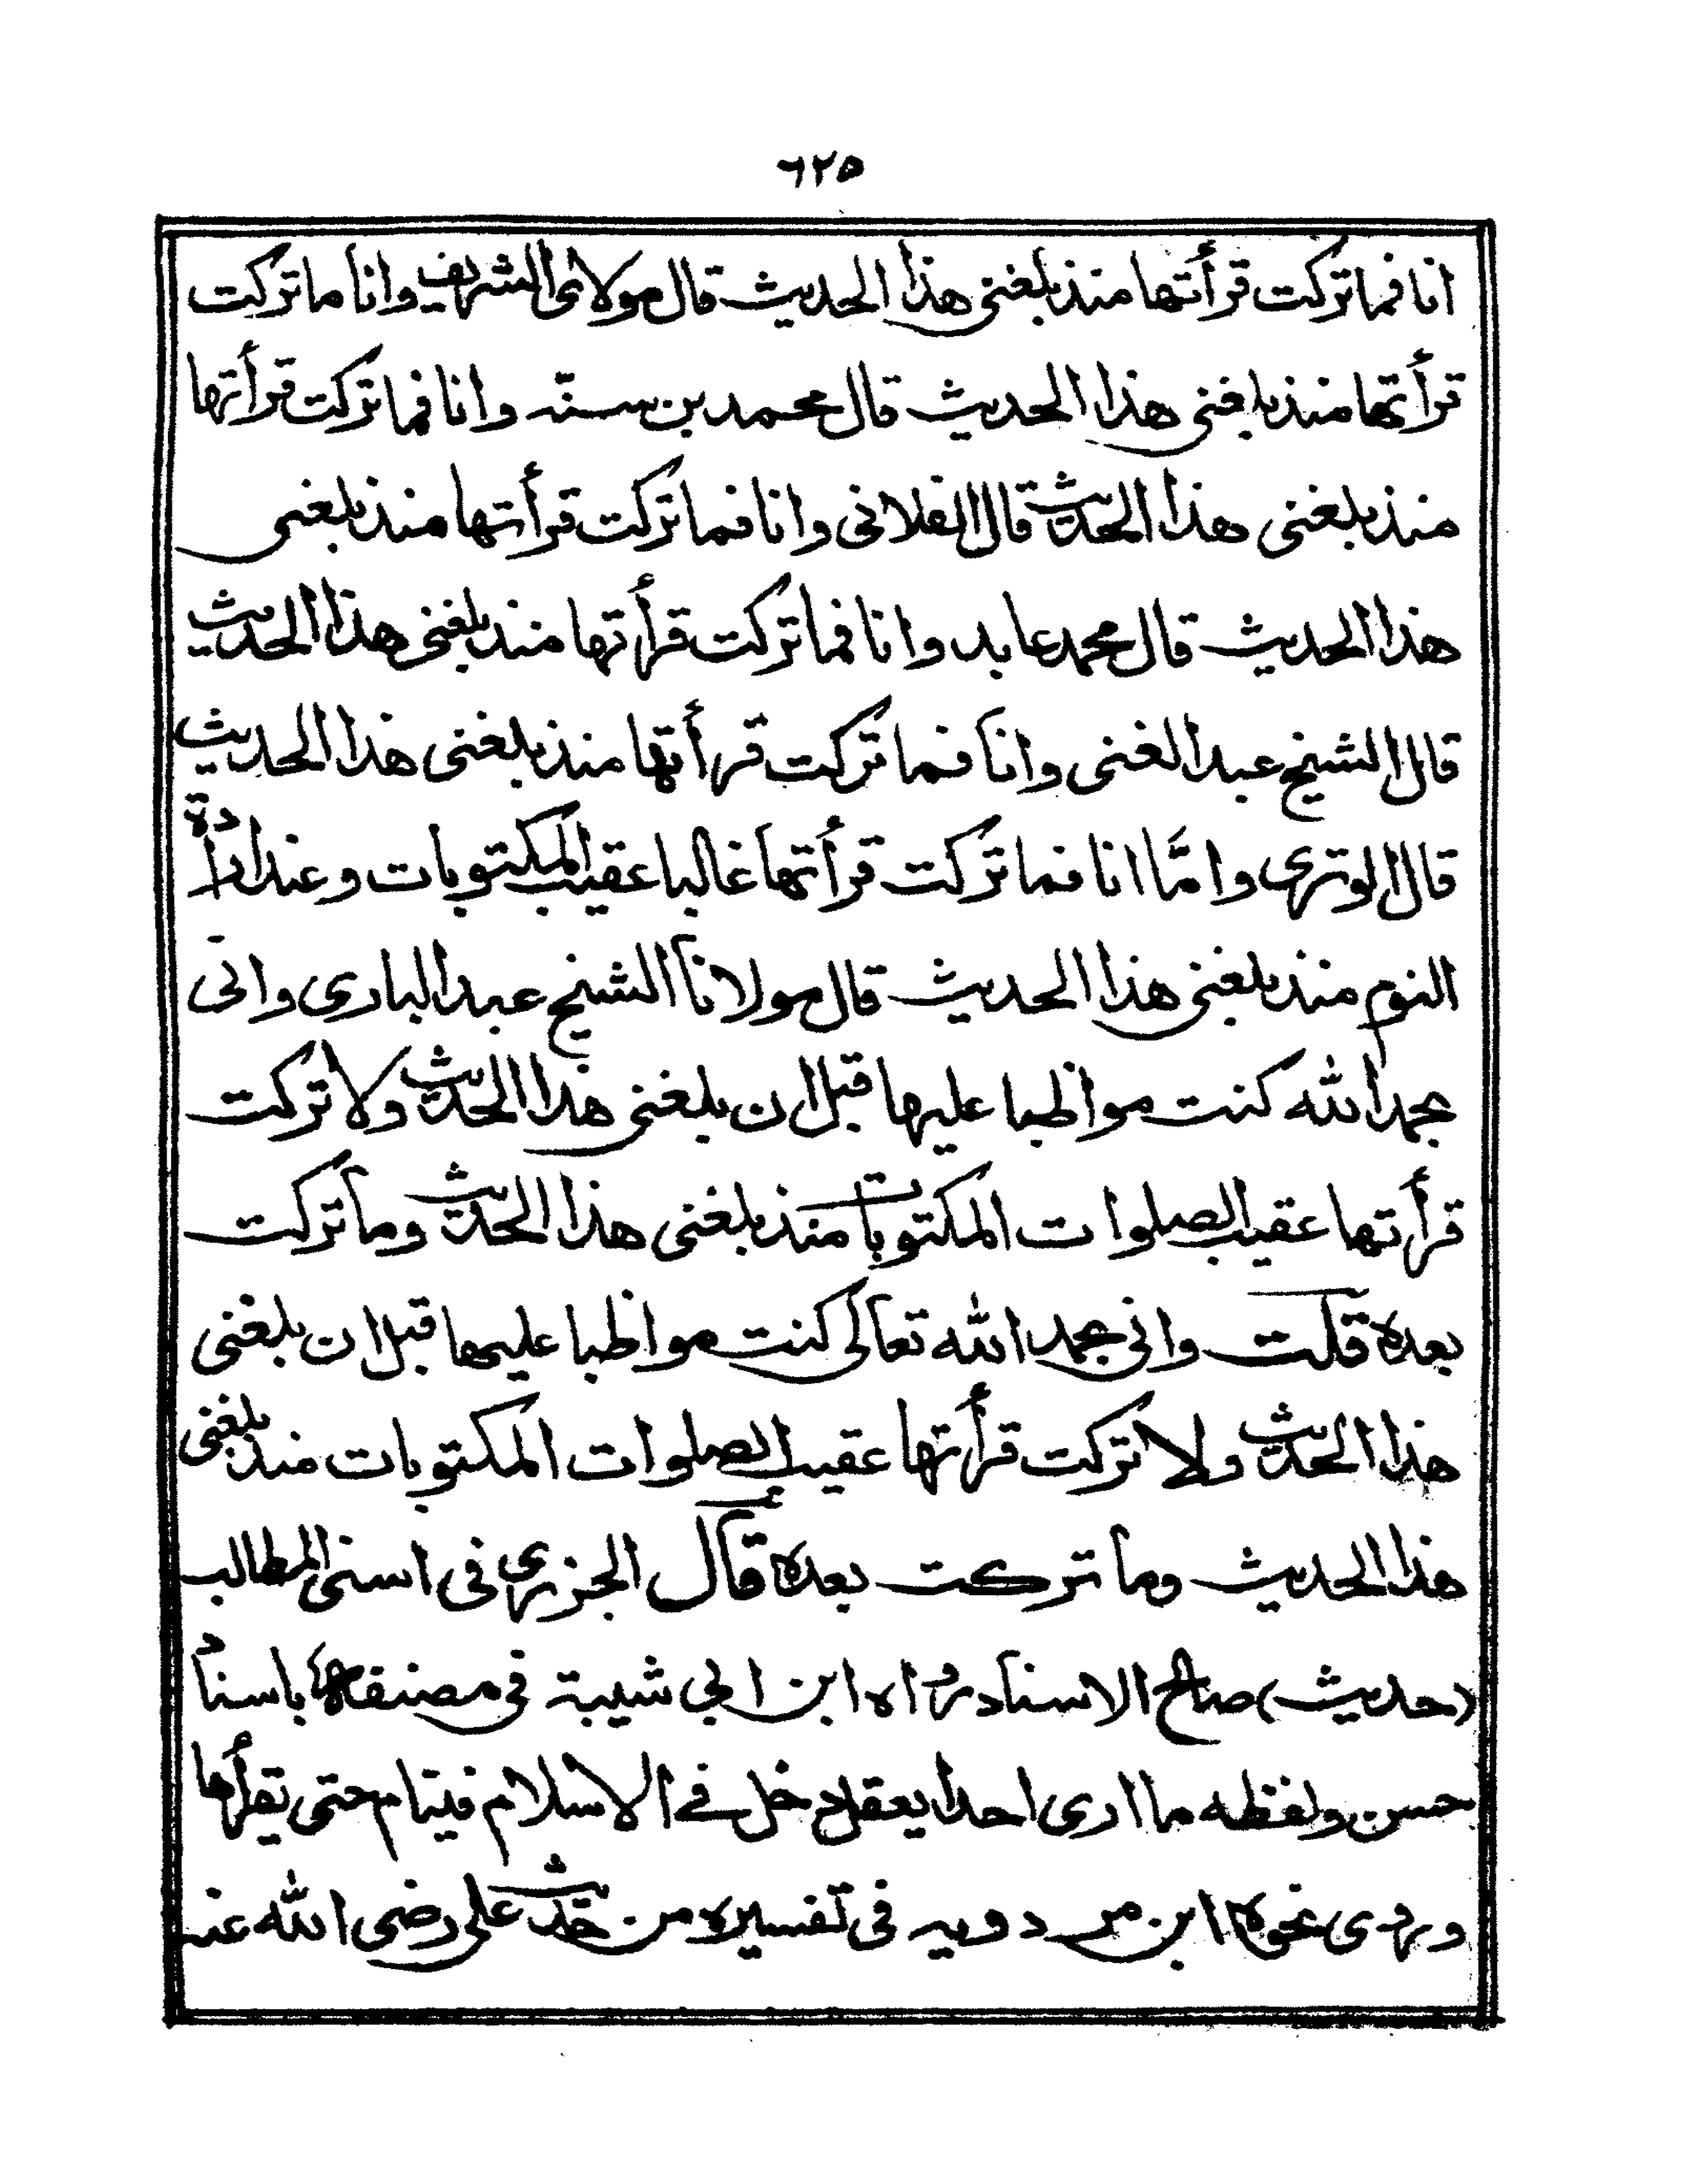 ٦٢٥
انا فما تركت قرأتها منذ بلغنى هذا الحديث قال مولاى الشريف وانا ما تركت
قرأتها منذ بلغنى هذا الحديث قال محمد بن سنّه وانا فما تركت قرأتها
منذ بلغنى هذا الحديث قال الفلانى وانا فما تركت قرأتها منذ بلغنى
هذا الحديث قال محمد عابد وانا فما تركت قرأتها منذ بلغنى هذا الحديث
قال الشيخ عبد الغنى وانا فما تركت قرأتها منذ بلغنى هذا الحديث
قال الوترى وامّا انا فما تركت قرأتها غالبا عقيب المكتوبات وعند ارادة
النوم منذ بلغنى هذا الحديث قال مولانا الشيخ عبد البارى وانى
بحمد الله كنت مواظبا عليها قبل ان بلغنى هذا الحديث ولا تركت
قرأتها عقيب الصلوات المكتوبات منذ بلغنى هذا الحديث وما تركت
بعده قلت وانى بحمد الله تعالى كنت مواظبا عليها قبل ان بلغنى
هذا الحديث ولا تركت قرأتها عقيب الصلوات المكتوبات منذ بلغنى
هذا الحديث وما تركت بعده قال الجزرى فى اسنى المطالب
(حديث) صالح الاسناد رواه ابن ابى شيبة فى باسناد
حسن ولفظه ما ارى احدا يعقل دخل فى الاسلام فينام حتى يقرأها
وروى نحوه ابن مردويه فى تفسيره من حديث على رضى الله عنه